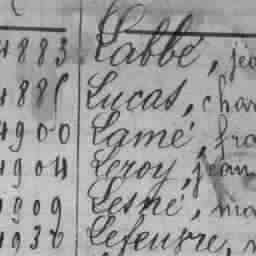 4883 Labbé, jea
488 Lucas, char
4900 Lamé, fra
4904 Leroy, jean
4909 Lesné, ma
4936 Lefeuvre,